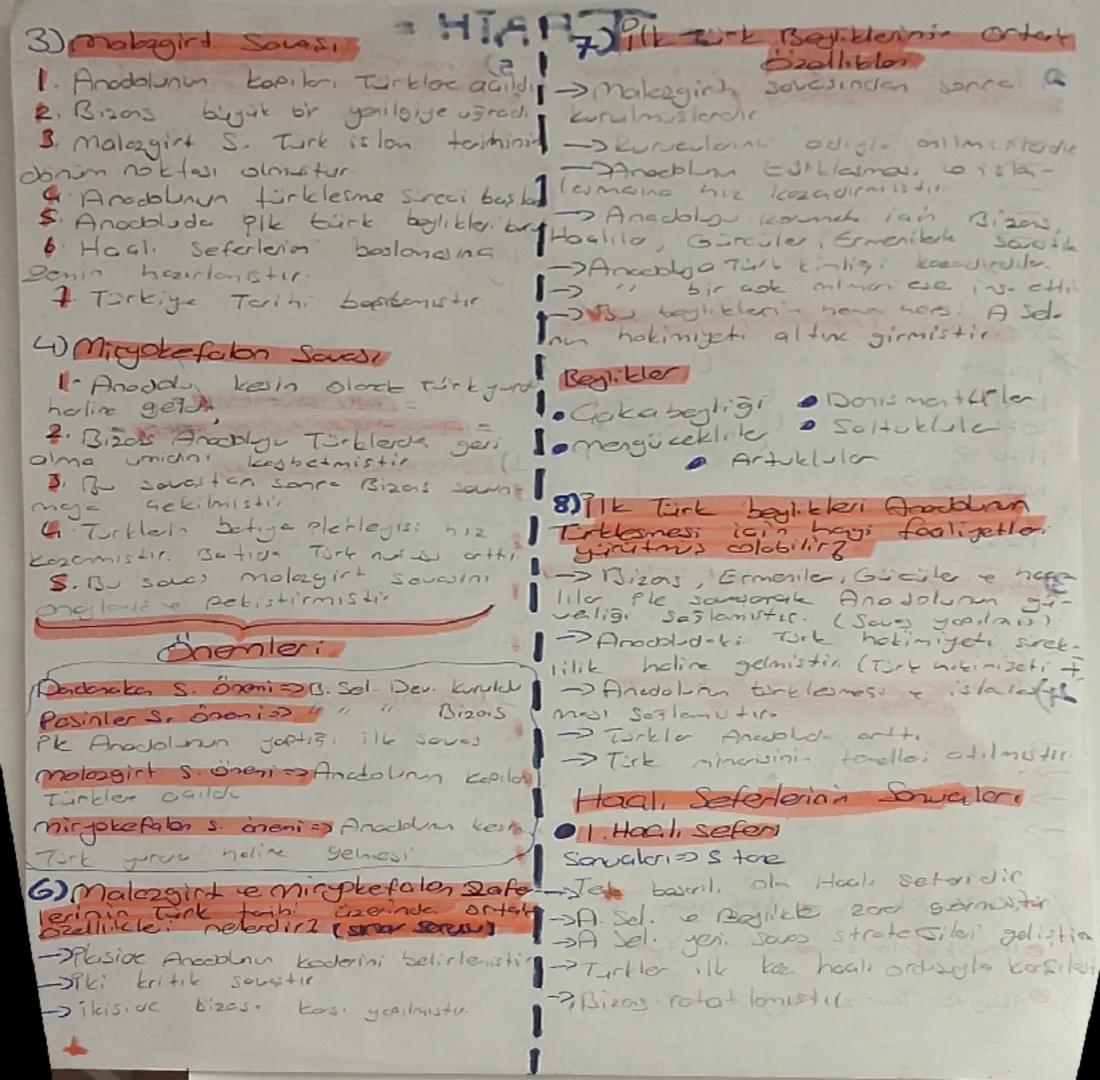 3) Malazgirt Savası
1. Anadolunun kapıları Türklere açıldı
2. Bizans büyük bir yenilgiye uğradı
3. Malazgirt S. Türk islam tarihinin
dönüm noktası olmuştur.
4. Anadolunun türkleşme süreci başla
5. Anadoluda ilk türk beylikleri kur
6. Haçlı Seferlerin başlamasına
zemin hazırlamıştır.
7 Türkiye Tarihi başlamıştır
4) Miryokefalon Savası
1- Anadolu kesin olarak Türk yurdu
haline geldi
2. Bizans Anadoluyu Türklerden geri
alma umidini kaybetmiştir
3. Bu savaştan sonra Bizans savun-
maya çekilmiştir
4. Türklerin batıya ilerleyişi hız
kazanmıştır. Batıda Türk nufusu arttı.
5. Bu savaş malazgirt savaşını
pekiştirmiştir
Önemleri
Dandanakan S. önemi => B. Sel. Dev. kuruldu
Pasinler S. önemi => " " " Bizans
ilk Anadolunun yaptığı ilk savaş
Malazgirt S. önemi => Anadolunun kapıları
Türklere açıldı
Miryokefalon S. önemi => Anadolunun kesin
Türk yurdu haline gelmesi
6) Malazgirt ve miryokefalon zafe
lerinin Türk tarihi üzerinde ortak
özellikleri nelerdir? (sınav sorusu)
-> ikiside Anadolunun kaderini belirlemiştir
-> iki kritik savaştır
-> ikiside bizans. karşı yapılmıştır.
7) ilk Türk Beyliklerinin ortak
Özellikleri
-> Malazgirt savaşından sonra
kurulmuşlardır
-> Kurucularının adıyla anılmışlardır
-> Anadolunun türkleşmesi ve isla-
laşmasına hız kazadırmıştır
-> Anadoluyu korumak için Bizans,
Haçlıla, Gürcüler, Ermenilerle savaştık
-> Anadoluya Türk kimliği kazadırdılar.
-> " bir çok mimari ese inşa etti
-> Bu beyliklerin heme hepsi A Sel.
nun hakimiyeti altına girmiştir
Beylikler
• Çaka beyliği • Danismentliler
• mengücekliler • Saltuklular
• Artuklular
8) ilk Türk beylikleri Anadolunun
Türkleşmesi için hangi faaliyetleri
yürütmüş olabilir?
-> Bizans, Ermeniler, Gücüler ve haç
lılar ile savaşarak Anadolunun gü-
venliği sağlamıştır. (Savaş yapılmış)
-> Anadoludaki Türk hakimiyeti sürek-
lilik haline gelmiştir (Türk hakimiyeti +
-> Anadolunun türkleşmesi ve islamlaş
ması sağlamıştır
-> Türkler Anadoluda arttı
-> Türk mimarisinin temelleri atılmıştır.
Haçlı Seferlerinin Sonuçları
• 1. Haçlı seferi
Sonuçları => 5 tane
-> Tek başarılı olan Haçlı seferidir
-> A. Sel. ve Beylikle zarar görmüştür
-> A Sel. yeni savaş stratejileri geliştir
-> Türkler ilk kez haçlı ordusuyla karşılaş
-> Bizans rahatlamıştır